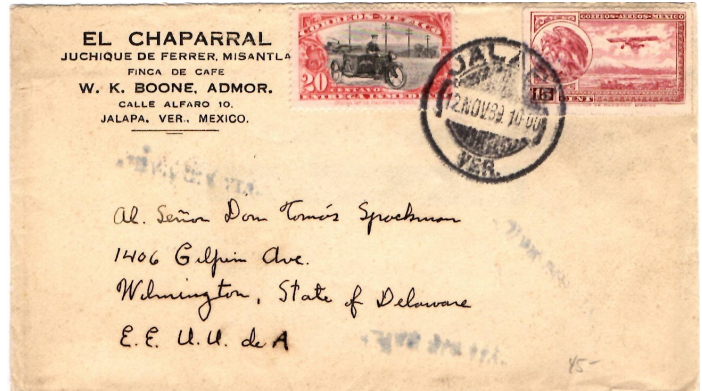 EL CHAPARRAL
JUCHIQUE DE FERRER, MISANTLA
FINCA DE CAFE
W. K. BOONE, ADMOR.
CALLE ALFARO 10.
JALAPA, VER., MEXICO.
CORREOS MEXICO
20
CENTAVOS
ENTREGA INMEDIATA
CORREOS-AEREOS-MEXICO
15
CENT
JALAPA
12 NOV. 39 10-00
VER.
Al. Señor Don Tomás Spackman
1406 Gilpin Ave.
Wilmington, State of Delaware
E. E. U. U. de A
45-